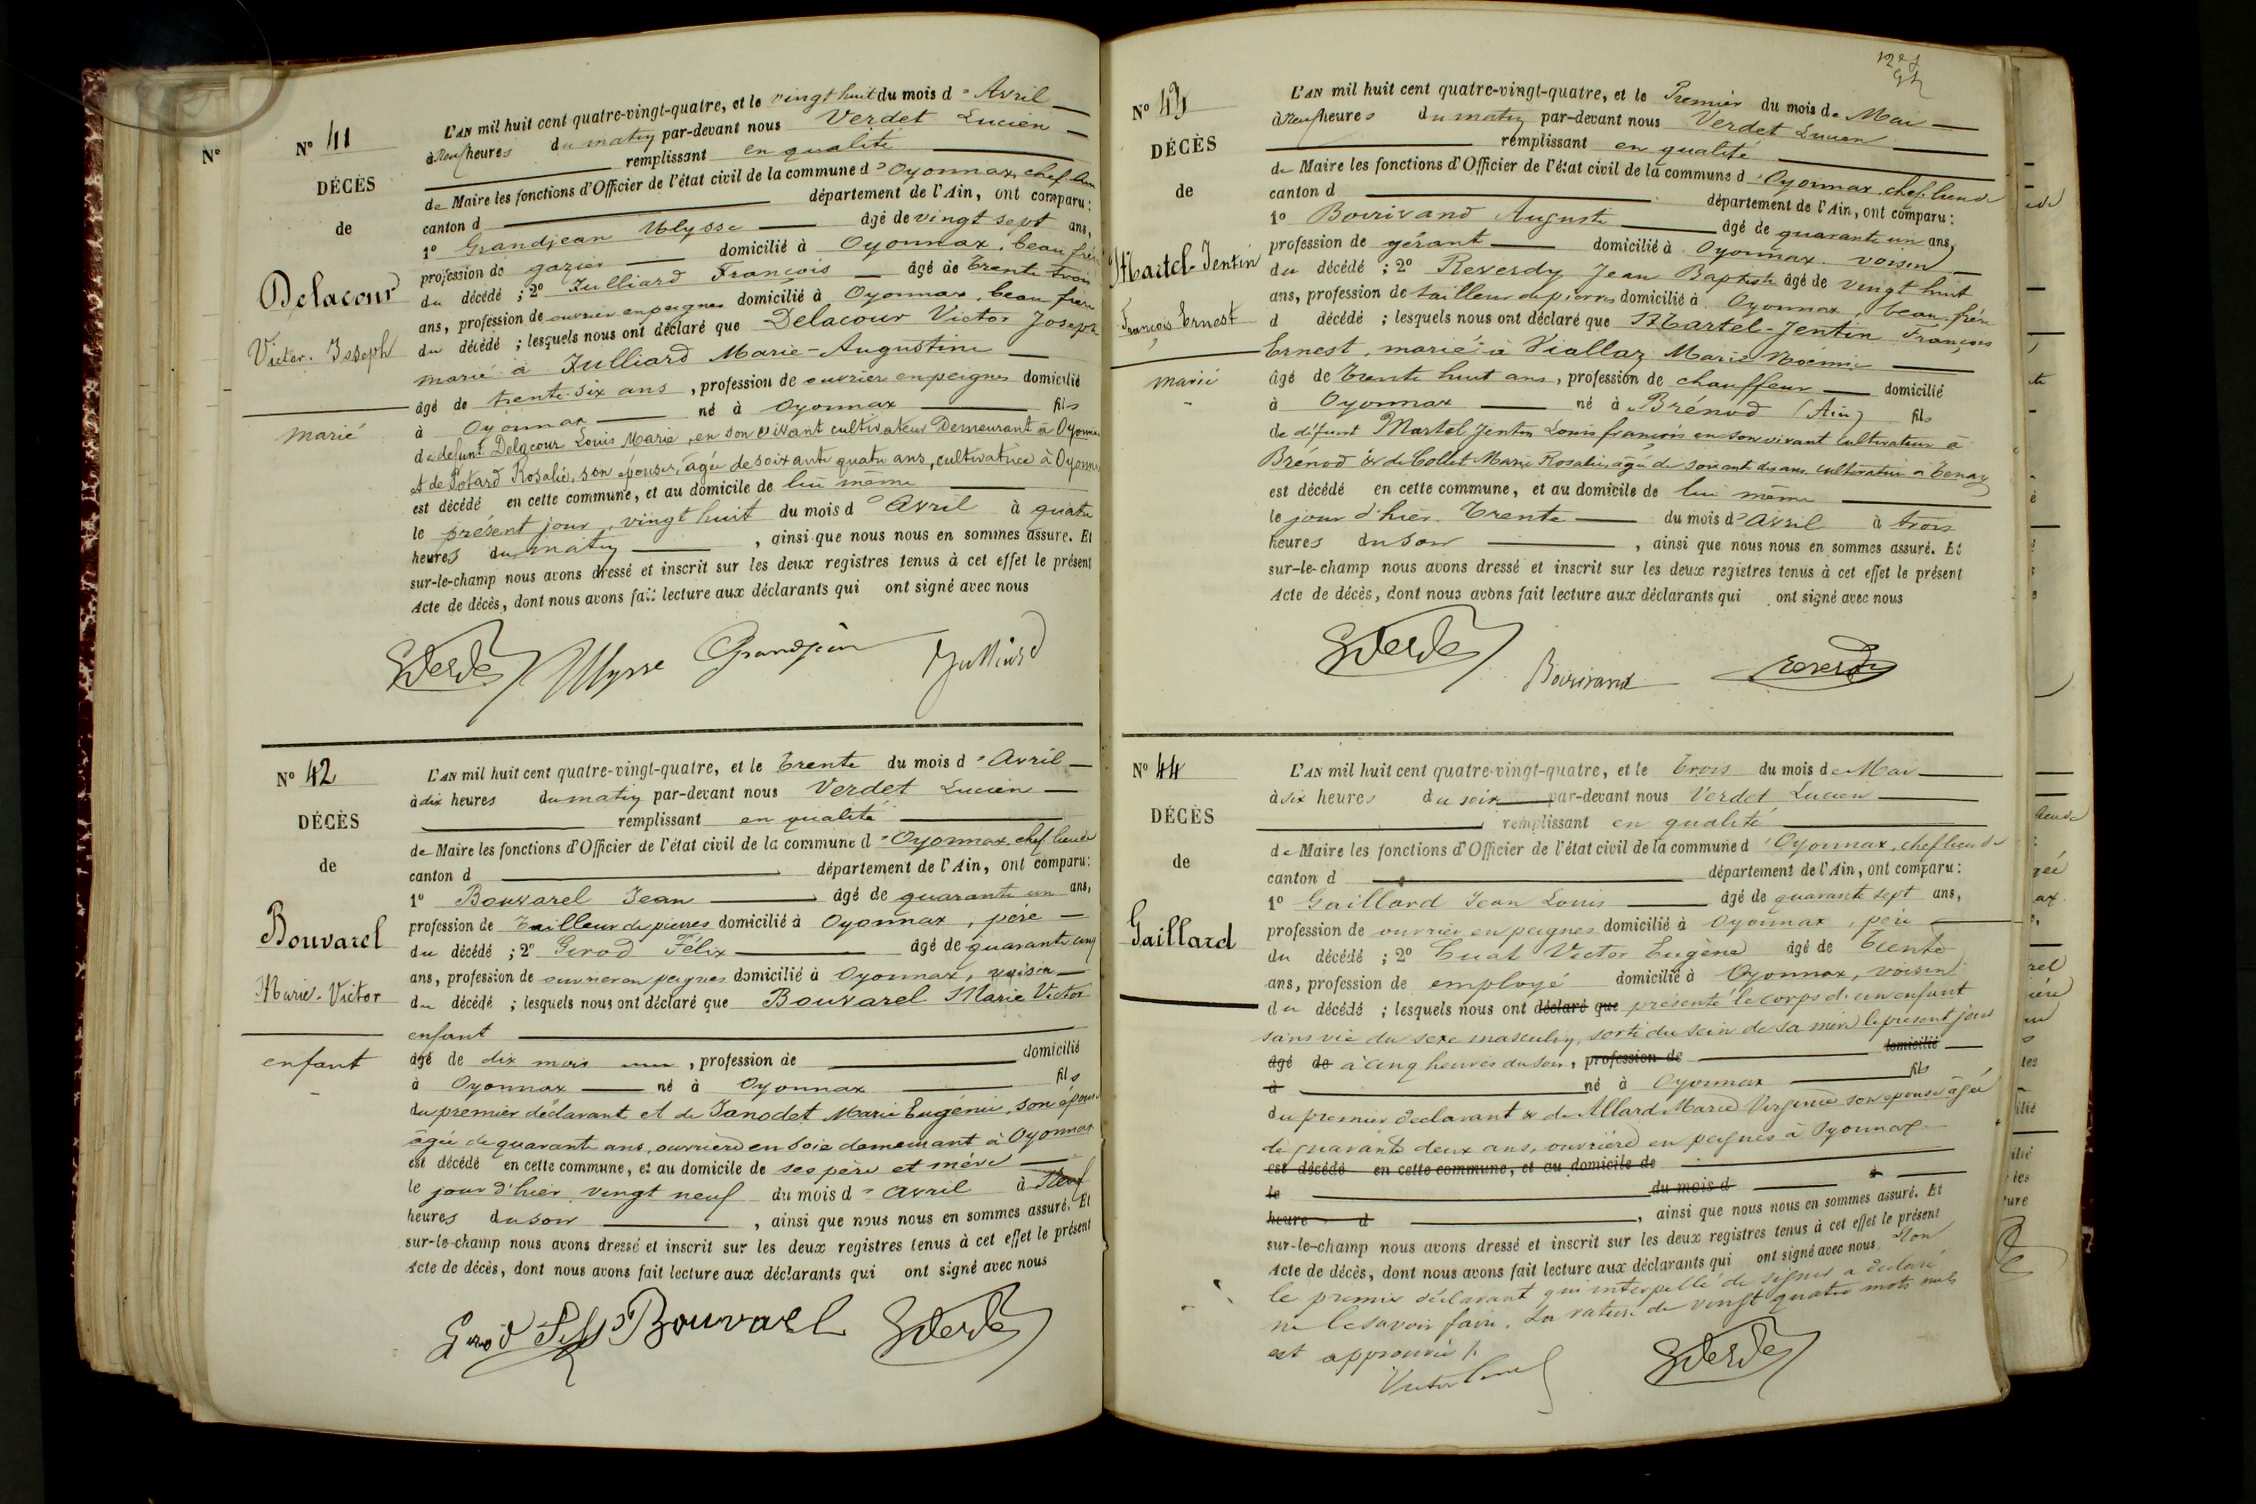 N°
N° 41
DÉCÈS
de
Delacour
Victor. Joseph
marié
L'AN mil huit cent quatre-vingt-quatre, et le vingt huit du mois d'Avril
à Neuf heures du matin par-devant nous Verdet Lucien
remplissant en qualité
de Maire les fonctions d'Officier de l'état civil de la commune d'Oyonnax, chef lieu
canton d département de l'Ain, ont comparu:
1° Grandjean Ulysse âgé de vingt sept ans,
profession de gazier domicilié à Oyonnax, beau frère
du décédé ; 2° Julliard François âgé de Trente trois
ans, profession de ouvrier en peignes domicilié à Oyonnax, beau frère
du décédé ; lesquels nous ont déclaré que Delacour Victor Joseph
marié à Julliard Marie-Augustine
âgé de trente-six ans, profession de ouvrier en peignes domicilié
à Oyonnax né à Oyonnax fils
de defunt Delacour Louis Marie, en son vivant cultivateur Demeurant à Oyonnax
et de Potard Rosalie, son épouse, âgée de soixante quatre ans, cultivatrice à Oyonnax
est décédé en cette commune, et au domicile de lui même
le présent jour, vingt huit du mois d'Avril à quatre
heures du matin, ainsi que nous nous en sommes assuré. Et
sur-le-champ nous avons dressé et inscrit sur les deux registres tenus à cet effet le présent
Acte de décès, dont nous avons fait lecture aux déclarants qui ont signé avec nous
Verdet Ulysse Grandjean Julliard
N° 42
DÉCÈS
de
Bouvarel
Marie. Victor
enfant
L'AN mil huit cent quatre-vingt-quatre, et le Trente du mois d'Avril
à dix heures du matin par-devant nous Verdet Lucien
remplissant en qualité
de Maire les fonctions d'Officier de l'état civil de la commune d'Oyonnax, chef lieu de
canton d département de l'Ain, ont comparu:
1° Bouvarel Jean âgé de quarante un ans,
profession de Tailleur de pierres domicilié à Oyonnax, père
du décédé ; 2° Girod Félix âgé de quarante cinq
ans, profession de ouvrier en peignes domicilié à Oyonnax, voisin
du décédé ; lesquels nous ont déclaré que Bouvarel Marie Victor
enfant
âgé de dix mois, profession de domicilié
à Oyonnax né à Oyonnax fils
du premier déclarant et de Janodet Marie Eugénie, son épouse
âgée de quarant ans, ouvrière en Soie demeurant à Oyonnax
est décédé en cette commune, et au domicile de ses père et mère
le jour d'hier vingt neuf du mois d'avril à Neuf
heures du soir, ainsi que nous nous en sommes assuré. Et
sur-le-champ nous avons dressé et inscrit sur les deux registres tenus à cet effet le présent
Acte de décès, dont nous avons fait lecture aux déclarants qui ont signé avec nous
Girod Félix Bouvarel Verdet
N° 43
DÉCÈS
de
Martel-Jentin
François Ernest
marié
L'AN mil huit cent quatre-vingt-quatre, et le Premier du mois de Mai
à Neuf heures du matin par-devant nous Verdet Lucien
remplissant en qualité
de Maire les fonctions d'Officier de l'état civil de la commune d'Oyonnax, chef lieu de
canton d département de l'Ain, ont comparu:
1° Boirivand Auguste âgé de quarante un ans,
profession de gérant domicilié à Oyonnax. voisin
du décédé ; 2° Reverdy Jean Baptiste âgé de vingt huit
ans, profession de tailleur de pierres domicilié à Oyonnax, beau frère
d décédé ; lesquels nous ont déclaré que Martel-Jentin François
Ernest, marié à Viallaz Marie Noémie
âgé de Trente huit ans, profession de chauffeur domicilié
à Oyonnax né à Brénod (Ain) fils
de défunt Martel Jentin Louis françois en son vivant cultivateur à
Brénod & de Collet Marie Rosalie, âgée de soixante dix ans, cultivatrice à Tenay
est décédé en cette commune, et au domicile de lui même
le jour d'hier Trente du mois d'avril à trois
heures du soir, ainsi que nous nous en sommes assuré. Et
sur-le-champ nous avons dressé et inscrit sur les deux registres tenus à cet effet le présent
Acte de décès, dont nous avons fait lecture aux déclarants qui ont signé avec nous
Verdet Boirivand Reverdy
N° 44
DÉCÈS
de
Gaillard
L'AN mil huit cent quatre-vingt-quatre, et le Trois du mois de Mai
à six heures du soir par-devant nous Verdet Lucien
remplissant en qualité
de Maire les fonctions d'Officier de l'état civil de la commune d'Oyonnax, chef lieu de
canton d département de l'Ain, ont comparu:
1° Gaillard Jean Louis âgé de quarante sept ans,
profession de ouvrier en peignes domicilié à Oyonnax, père
du décédé ; 2° Tuat Victor Eugène âgé de Trente
ans, profession de employé domicilié à Oyonnax, voisin
du décédé ; lesquels nous ont déclaré que présenté le corps d'un enfant
sans vie du sexe masculin, sorti du sein de sa mère le présent jour
âgé de à cinq heures du soir, profession de domicilié
à né à Oyonnax fils
du premier déclarant & de Allard Marie Virginie son épouse âgée
de quarante deux ans, ouvrière en peignes à Oyonnax
est décédé en cette commune, et au domicile de
le du mois d à
heure d, ainsi que nous nous en sommes assuré. Et
sur-le-champ nous avons dressé et inscrit sur les deux registres tenus à cet effet le présent
Acte de décès, dont nous avons fait lecture aux déclarants qui ont signé avec nous, Non
le premier déclarant qui interpellé de signer a déclaré
ne le savoir faire. La rature de vingt quatre mots nuls
est approuvée
Verdet